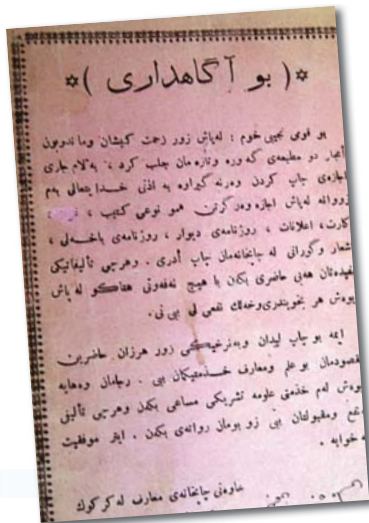 ( بو آگاهداری )
بو قومی نجیبی خوم : لەپاش زور زحمت کیشان وماندوبون
دو مطبعەی گەورە وتازەمان جلب کرد ، بەلام جاری
اجازەی چاپ کردن وەرنەگیراوە بە اذنی خدایتعالی بەم
زووانە لەپاش اجازە وەرگرتن همو نوعی کتیب ،
کارت، اعلانات ، روژنامەی دیوار ، روژنامەی باخەلی ،
اشعار وگورانی لە چاپخانەمان چاپ أدری . وهرچی تألیفاتیکی
مفیدەتان هەبی حاضری بکەن با هیچ نەفەوتی هتاکو لە پاش
ئیوەش هر بخویندری وخەلك نفعی لی ببینی .
ایمە بو چاپ لیدان وبەنرخیکی زور هرزان حاضرین
مقصودمان بو علم ومعارف خذمتیکمان ببی . رجامان وەهایە
ئیوەش لەم خذمتی علومە تشریکی مساعی بکەن وهرچی تألیفی
نافع ومقبولتان ببی زو بومان روانەی بکەن . ایتر موفقیت
لە خوایە .
خاوەنی چاپخانەی معارف لە کرکوك